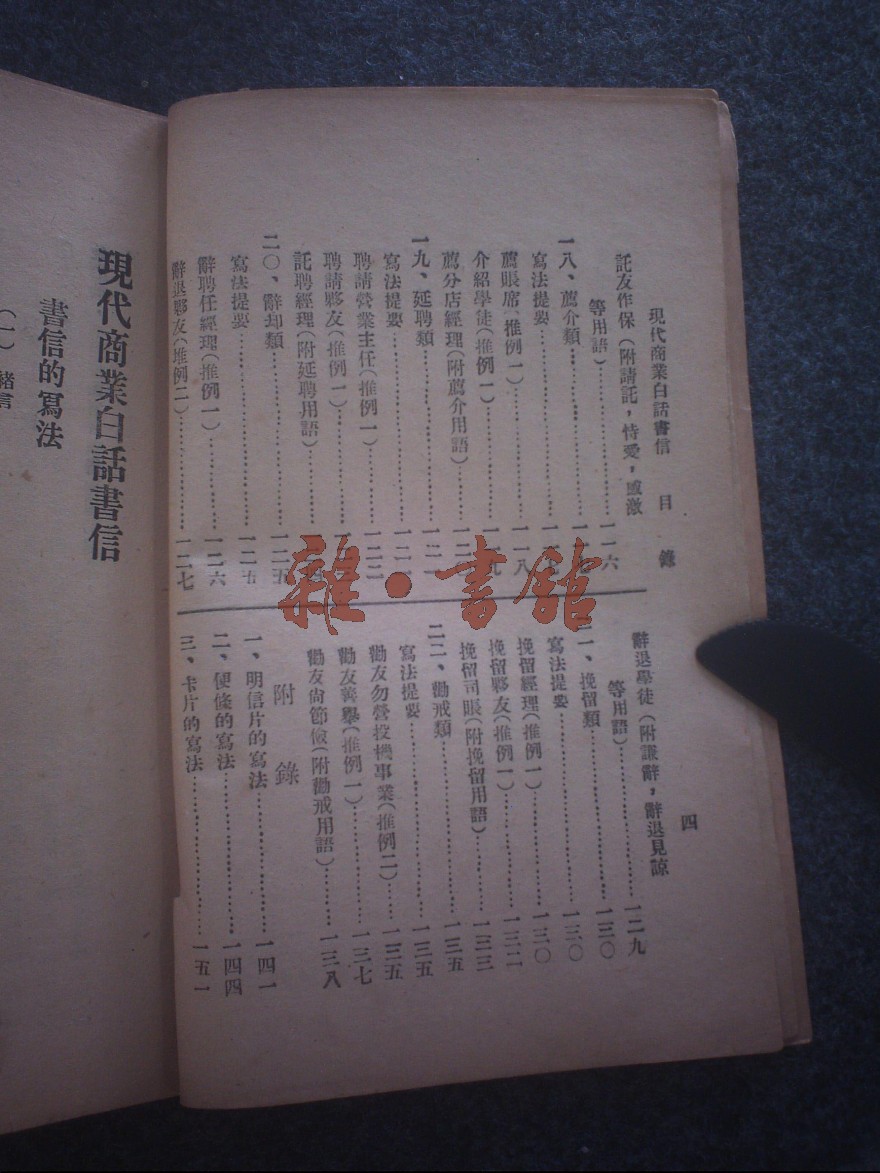 現代商業白話書信 目錄
四
託友作保(附請託,恃愛,感激
等用語)……一一六
一八、薦介類……
寫法提要……
薦賬席(推例一)……一一八
介紹學徒(推例一)……
薦分店經理(附薦介用語)……
一九、延聘類……一二一
寫法提要……一二一
聘請營業主任(推例一)……一二二
聘請夥友(推例一)……
託聘經理(附延聘用語)……
二〇、辭却類……一二五
寫法提要……一二五
辭聘任經理(推例一)……一二六
辭退夥友(推例二)……一二七
辭退學徒(附謙辭,辭退見諒
等用語)……一二九
二一、挽留類……一三〇
寫法提要……一三〇
挽留經理(推例一)……一三〇
挽留夥友(推例一)……一三二
挽留司賬(附挽留用語)……一三三
二二、勸戒類……一三五
寫法提要……一三五
勸友勿營投機事業(推例二)……一三五
勸友善舉(推例一)……一三七
勸友尚節儉(附勸戒用語)……一三八
附錄
一、明信片的寫法……一四一
二、便條的寫法……一四四
三、卡片的寫法……一五一
現代商業白話書信
書信的寫法
(一) 緒言
雜·書館